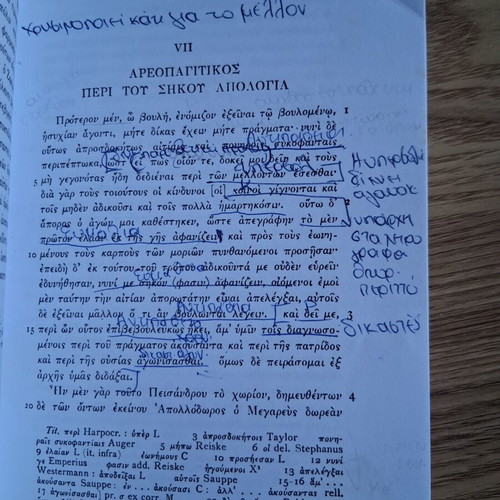 χρησιμοποιεί κάτι για το μέλλον
VII
ΑΡΕΟΠΑΓΙΤΙΚΟΣ
ΠΕΡΙ ΤΟΥ ΣΗΚΟΥ ΑΠΟΛΟΓΙΑ
Πρότερον μέν, ὦ βουλή, ἐνόμιζον ἐξεῖναι τῷ βουλομένῳ, 1
ἡσυχίαν ἄγοντι, μήτε δίκας ἔχειν μήτε πράγματα· νυνὶ δὲ
οὕτως ἀπροσδοκήτως αἰτίαις καὶ πονηροῖς συκοφάνταις
περιπέπτωκα, ὥστ' εἴ πως οἷόν τε, δοκεῖ μοι δεῖν καὶ τοὺς
5 μὴ γεγονότας ἤδη δεδιέναι περὶ τῶν μελλόντων ἔσεσθαι·
διὰ γὰρ τοὺς τοιούτους οἱ κίνδυνοι [οἱ] κοινοὶ γίγνονται καὶ
τοῖς μηδὲν ἀδικοῦσι καὶ τοῖς πολλὰ ἡμαρτηκόσιν. οὕτω δ' 2
ἄπορος ὁ ἀγών μοι καθέστηκεν, ὥστε ἀπεγράφην τὸ μὲν
πρῶτον ἐλάαν ἐκ τῆς γῆς ἀφανίζειν, καὶ πρὸς τοὺς ἐωνη-
10 μένους τοὺς καρποὺς τῶν μοριῶν πυνθανόμενοι προσῇσαν·
ἐπειδὴ δ' ἐκ τούτου τοῦ τρόπου ἀδικοῦντά με οὐδὲν εὑρεῖν
ἐδυνήθησαν, νυνί με σηκόν (φασιν) ἀφανίζειν, οἰόμενοι ἐμοὶ
μὲν ταύτην τὴν αἰτίαν ἀπορωτάτην εἶναι ἀπελέγξαι, αὑτοῖς
δὲ ἐξεῖναι μᾶλλον ὅ τι ἂν βούλωνται λέγειν. καὶ δεῖ με, 3
15 περὶ ὧν οὗτος ἐπιβεβουλευκὼς ἥκει, ἅμ' ὑμῖν τοῖς διαγνωσο-
μένοις περὶ τοῦ πράγματος ἀκούσαντα καὶ περὶ τῆς πατρίδος
καὶ περὶ τῆς οὐσίας ἀγωνίσασθαι. ὅμως δὲ πειράσομαι ἐξ
ἀρχῆς ὑμᾶς διδάξαι.
Ἦν μὲν γὰρ τοῦτο Πεισάνδρου τὸ χωρίον, δημευθέντων 4
20 δὲ τῶν ὄντων ἐκείνου Ἀπολλόδωρος ὁ Μεγαρεὺς δωρεὰν
δικαστές
Tit. περὶ Harpocr. : ὑπὲρ L 3 ἀπροσδοκήτοις Taylor πονη-
ραῖς συκοφαντίαις Auger 5 μήπω Reiske 6 οἱ del. Stephanus
9 ἐλαίαν L (it. infra) ἐωνήμους C 10 προσῆεσαν L 12 νυνί
γε Emperius φασιν add. Reiske ἡγούμενοι X 13 ἀπελέγξαι
Westermann : ἀποδεῖξαι L αὐτοῖς Sauppe 15-16 ἅμ' . . .
ἀκούσαντα Sauppe : ἐν . . . ἀκούσασι C : ἀλλ' . . . ἀκούσαντας rell.
17 ἀγωνίσασθαι pr. σ ex corr. M